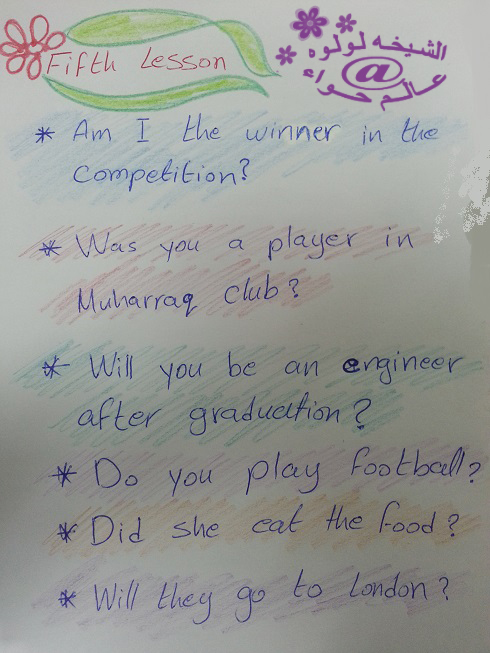 Fifth Lesson
الشيخه لولوه
@
عالم حواء
* Am I the winner in the
competition?
* Was you a player in
Muharraq club?
* Will you be an engineer
after graduation?
* Do you play football?
* Did she eat the food?
* Will they go to London?